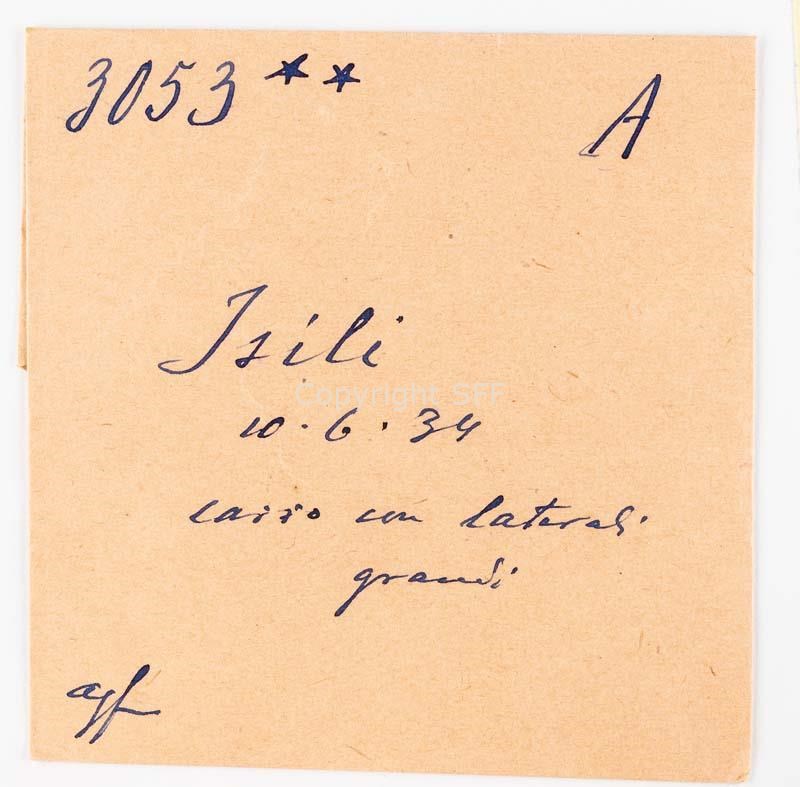 3053 ** A
Isili
Copyright SFF
10.6.34
carro con laterali
grandi
agf